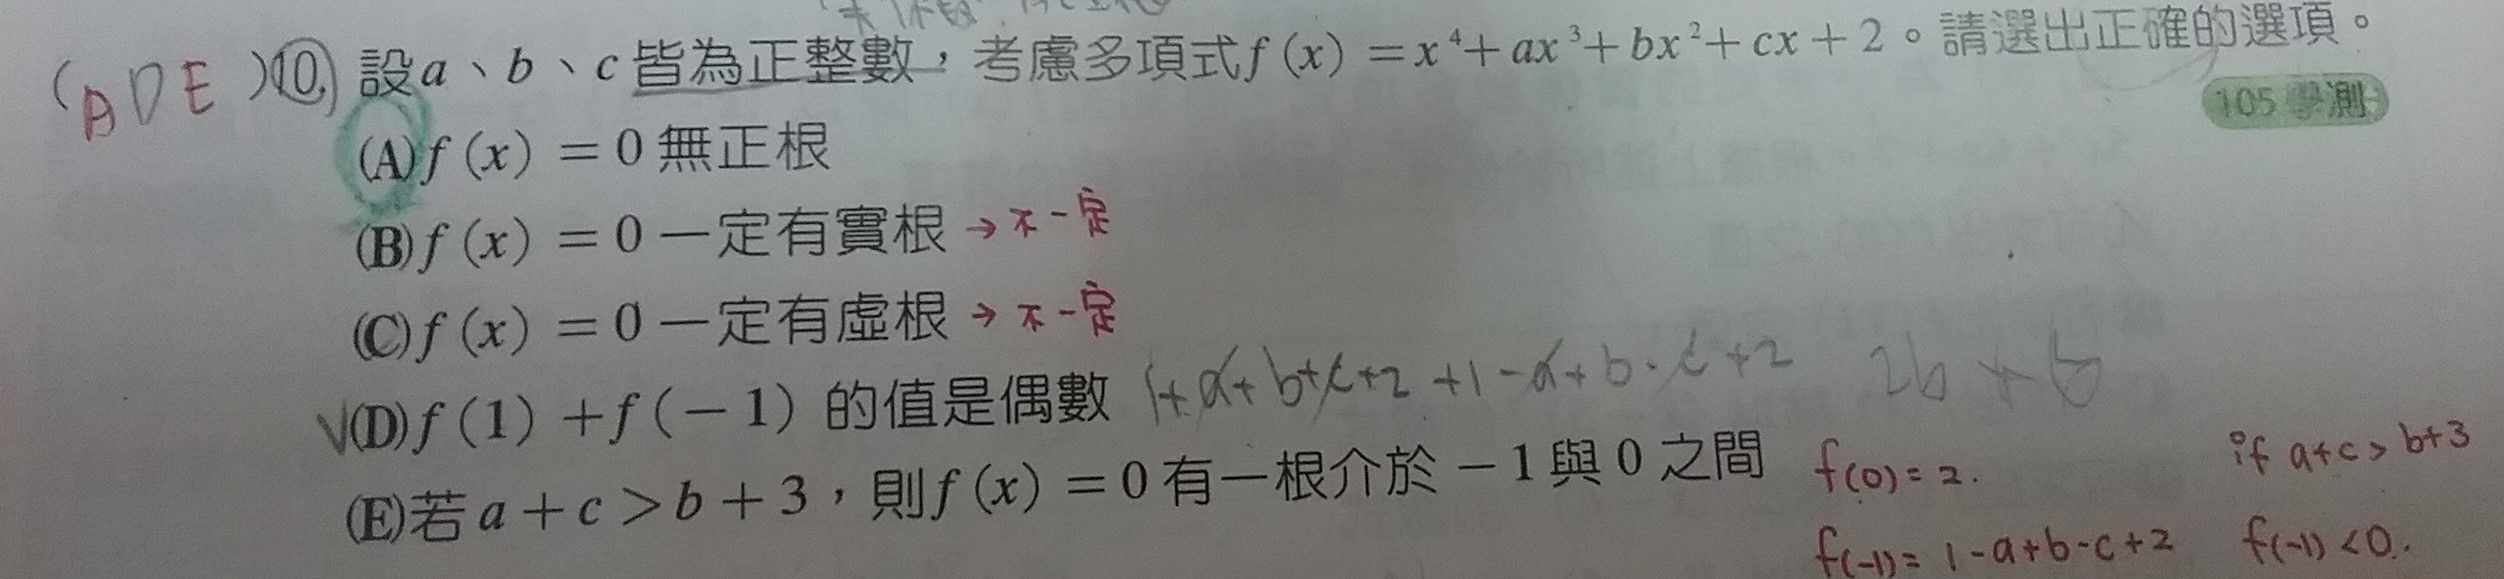 (ADE)10. 設a、b、c皆為正整數，考慮多項式f(x)=x⁴+ax³+bx²+cx+2。請選出正確的選項。
105學測
(A)f(x)=0無正根
(B)f(x)=0一定有實根→不一定
(C)f(x)=0一定有虛根→不一定
√(D)f(1)+f(-1)的值是偶數 1+a+b+c+2+1-a+b-c+2 2b+6
(E)若a+c>b+3，則f(x)=0有一根介於-1與0之間 f(0)=2. if a+c>b+3
f(-1)=1-a+b-c+2 f(-1)<0.